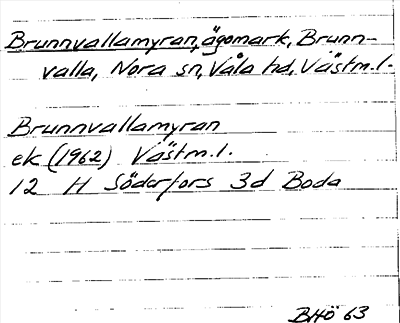 Brunnvallamyran, ägomark, Brunn-
valla, Nora sn, Våla hd, Västm.l.
Brunnvallamyran
ek (1962) Västm.l.
12 H Söderfors 3d Boda
BHÖ 63